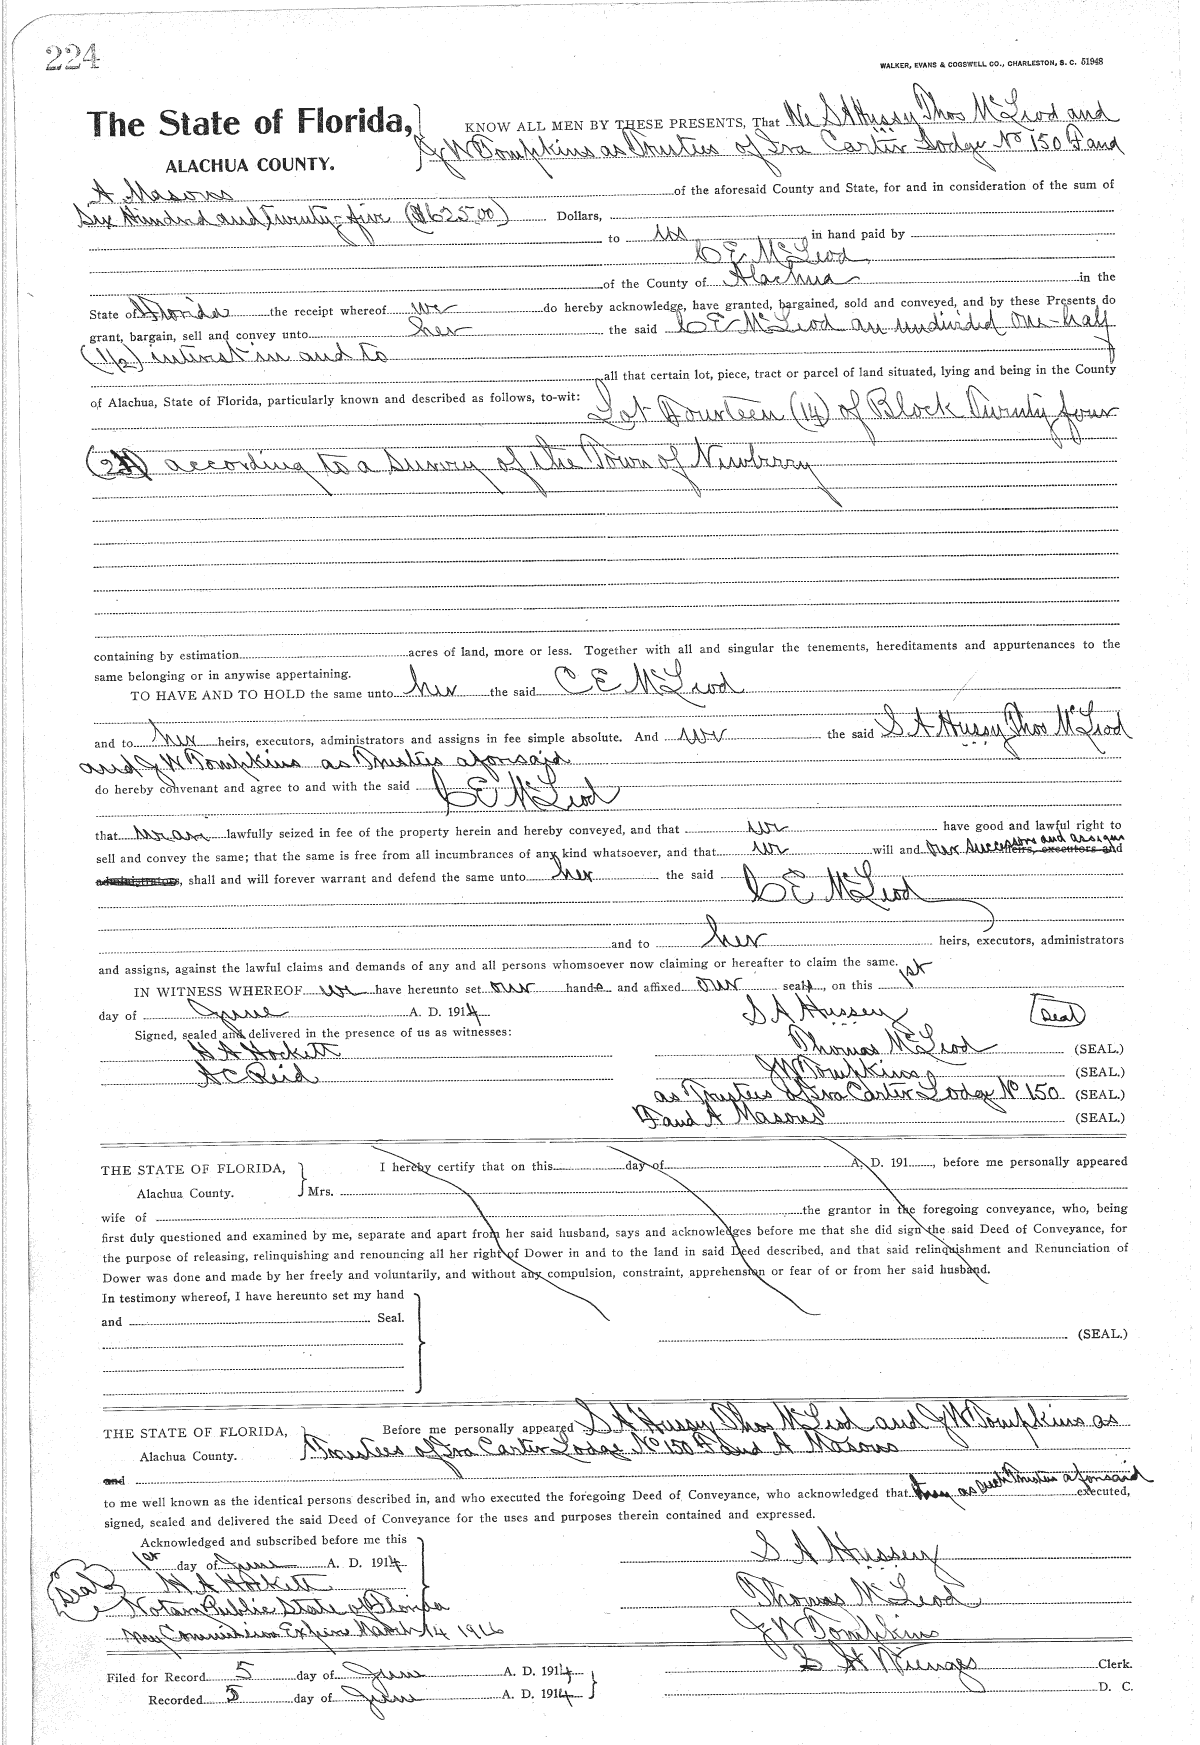 224
WALKER, EVANS & COGSWELL CO., CHARLESTON, S. C. 51948
The State of Florida, } KNOW ALL MEN BY THESE PRESENTS, That We S A Hussey Thos McLeod and
ALACHUA COUNTY. J W Tompkins as Trustees of Ira Carter Lodge No 150 F and
A Masons of the aforesaid County and State, for and in consideration of the sum of
Six Hundred and Twenty-five ($625.00) Dollars,
to us in hand paid by
C E McLeod
of the County of Alachua in the
State of Florida the receipt whereof we do hereby acknowledge, have granted, bargained, sold and conveyed, and by these Presents do
grant, bargain, sell and convey unto her the said C E McLeod an undivided one-half
(1/2) interest in and to
all that certain lot, piece, tract or parcel of land situated, lying and being in the County
of Alachua, State of Florida, particularly known and described as follows, to-wit: Lot Fourteen (14) of Block Twenty four
(24) according to a survey of the Town of Newberry
containing by estimation acres of land, more or less. Together with all and singular the tenements, hereditaments and appurtenances to the
same belonging or in anywise appertaining.
TO HAVE AND TO HOLD the same unto her the said C E McLeod
and to her heirs, executors, administrators and assigns in fee simple absolute. And we the said S A Hussey Thos McLeod
and J W Tompkins as Trustees aforesaid
do hereby convenant and agree to and with the said C E McLeod
that we are lawfully seized in fee of the property herein and hereby conveyed, and that we have good and lawful right to
sell and convey the same; that the same is free from all incumbrances of any kind whatsoever, and that we will and our successors and assigns heirs, executors and
administrators, shall and will forever warrant and defend the same unto her the said C E McLeod
and to her heirs, executors, administrators
and assigns, against the lawful claims and demands of any and all persons whomsoever now claiming or hereafter to claim the same.
IN WITNESS WHEREOF we have hereunto set our hands and affixed our seals, on this 1st
day of June A. D. 1914 S A Hussey Seal
Signed, sealed and delivered in the presence of us as witnesses:
H A Hockett Thomas McLeod (SEAL.)
A C Reid J W Tompkins (SEAL.)
as Trustees of Ira Carter Lodge No 150 (SEAL.)
F and A Masons (SEAL.)
THE STATE OF FLORIDA, } I hereby certify that on this day of A. D. 191 , before me personally appeared
Alachua County. Mrs.
wife of the grantor in the foregoing conveyance, who, being
first duly questioned and examined by me, separate and apart from her said husband, says and acknowledges before me that she did sign the said Deed of Conveyance, for
the purpose of releasing, relinquishing and renouncing all her right of Dower in and to the land in said Deed described, and that said relinquishment and Renunciation of
Dower was done and made by her freely and voluntarily, and without any compulsion, constraint, apprehension or fear of or from her said husband.
In testimony whereof, I have hereunto set my hand
and Seal.
(SEAL.)
THE STATE OF FLORIDA, } Before me personally appeared S A Hussey Thos McLeod and J W Tompkins as
Alachua County. Trustees of Ira Carter Lodge No 150 F and A Masons
and
to me well known as the identical persons described in, and who executed the foregoing Deed of Conveyance, who acknowledged that they as such Trustees aforesaid executed,
signed, sealed and delivered the said Deed of Conveyance for the uses and purposes therein contained and expressed.
Acknowledged and subscribed before me this
1st day of June A. D. 1914 S A Hussey
Seal H A Hockett
Notary Public State of Florida Thomas McLeod
My Commission Expires March 14 1916 J W Tompkins
Filed for Record 5 day of June A. D. 1914 S H Wienges Clerk.
Recorded 5 day of June A. D. 1914 D. C.